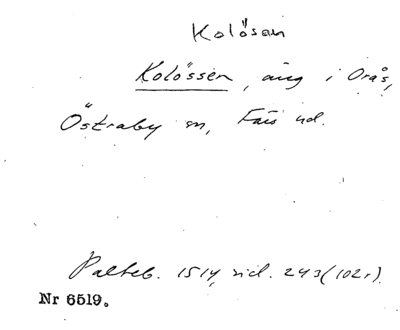 Kolösan
Kolössen, äng i Orås,
Östraby sn, Färs hd.
Palteb. 1514, sid. 243 (102r).
Nr 6519.